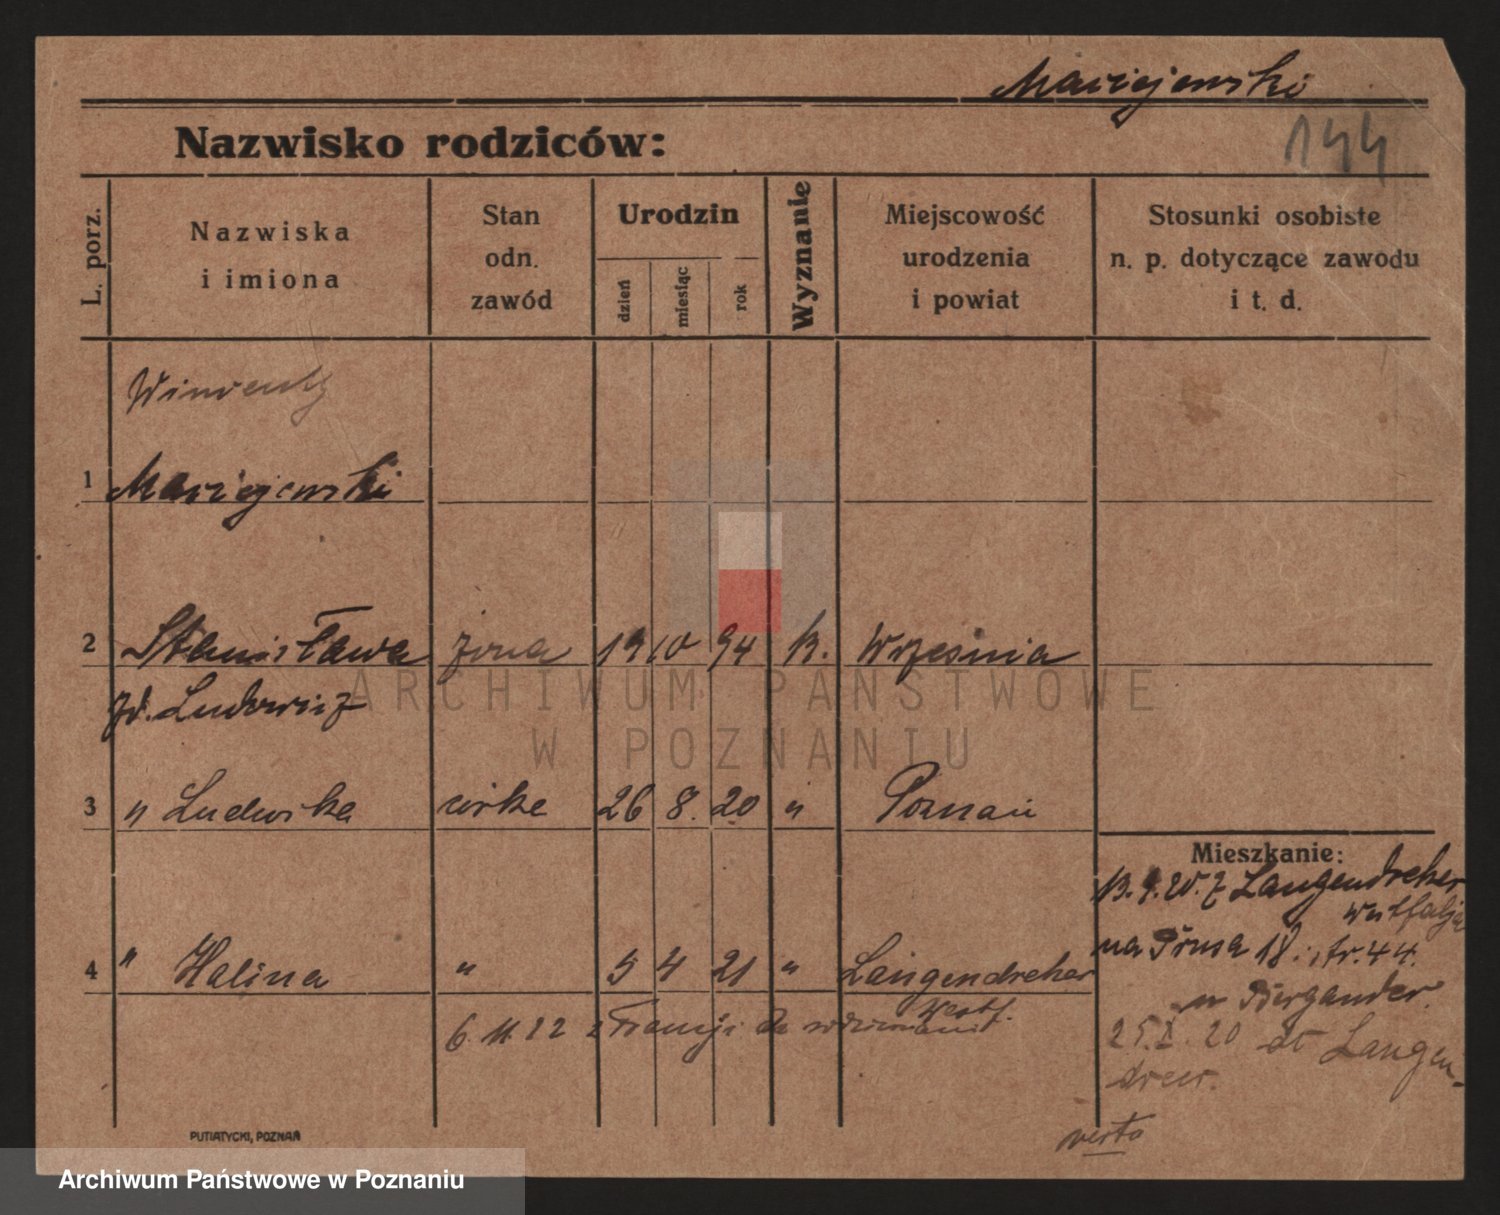 Maciejewski
144
Nazwisko rodziców:
L. porz.
Nazwiska
i imiona
Stan
odn.
zawód
Urodzin
dzień
miesiąc
rok
Wyznanie
Miejscowość
urodzenia
i powiat
Stosunki osobiste
n. p. dotyczące zawodu
i t. d.
Wincenty
1 Maciejewski
2 Stanisława żona 19 10 94 k. Września
zd. Ludowicz
3 " Ludwika córka 26 8. 20 " Poznań
Mieszkanie:
13.9.20. z Langendreher
Westfalja
na Prusa 18. tr. 44.
4 " Halina " 5 4 21 " Langendreher
Westf.
u Biergander.
6.11.22 z Francji do
25.X.20 do Langen-
dreer.
verte
PUTIATYCKI, POZNAŃ
ARCHIWUM PAŃSTWOWE
W POZNANIU
Archiwum Państwowe w Poznaniu